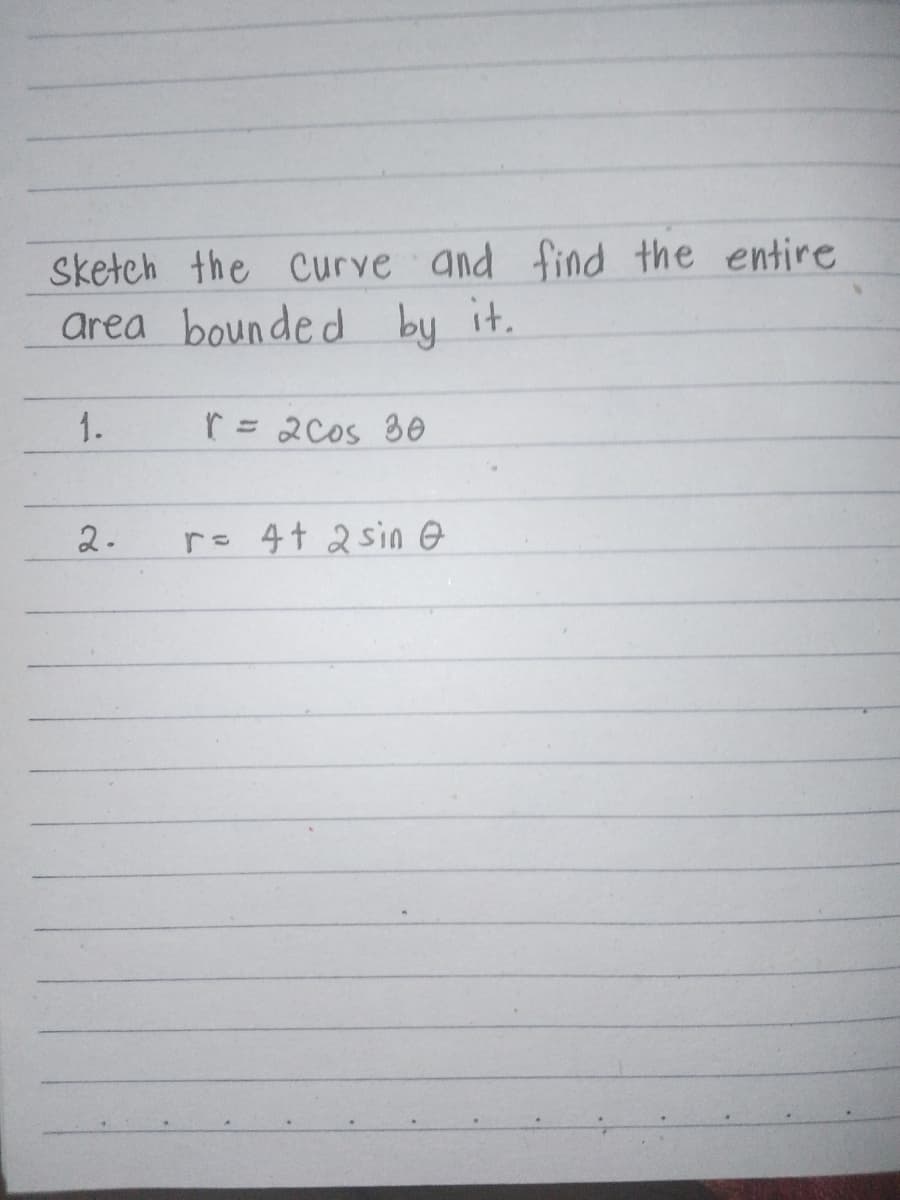 Sketch the curve and find the entire
area bounded by it.
1. r = 2 cos 3θ
2. r = 4 + 2 sin θ